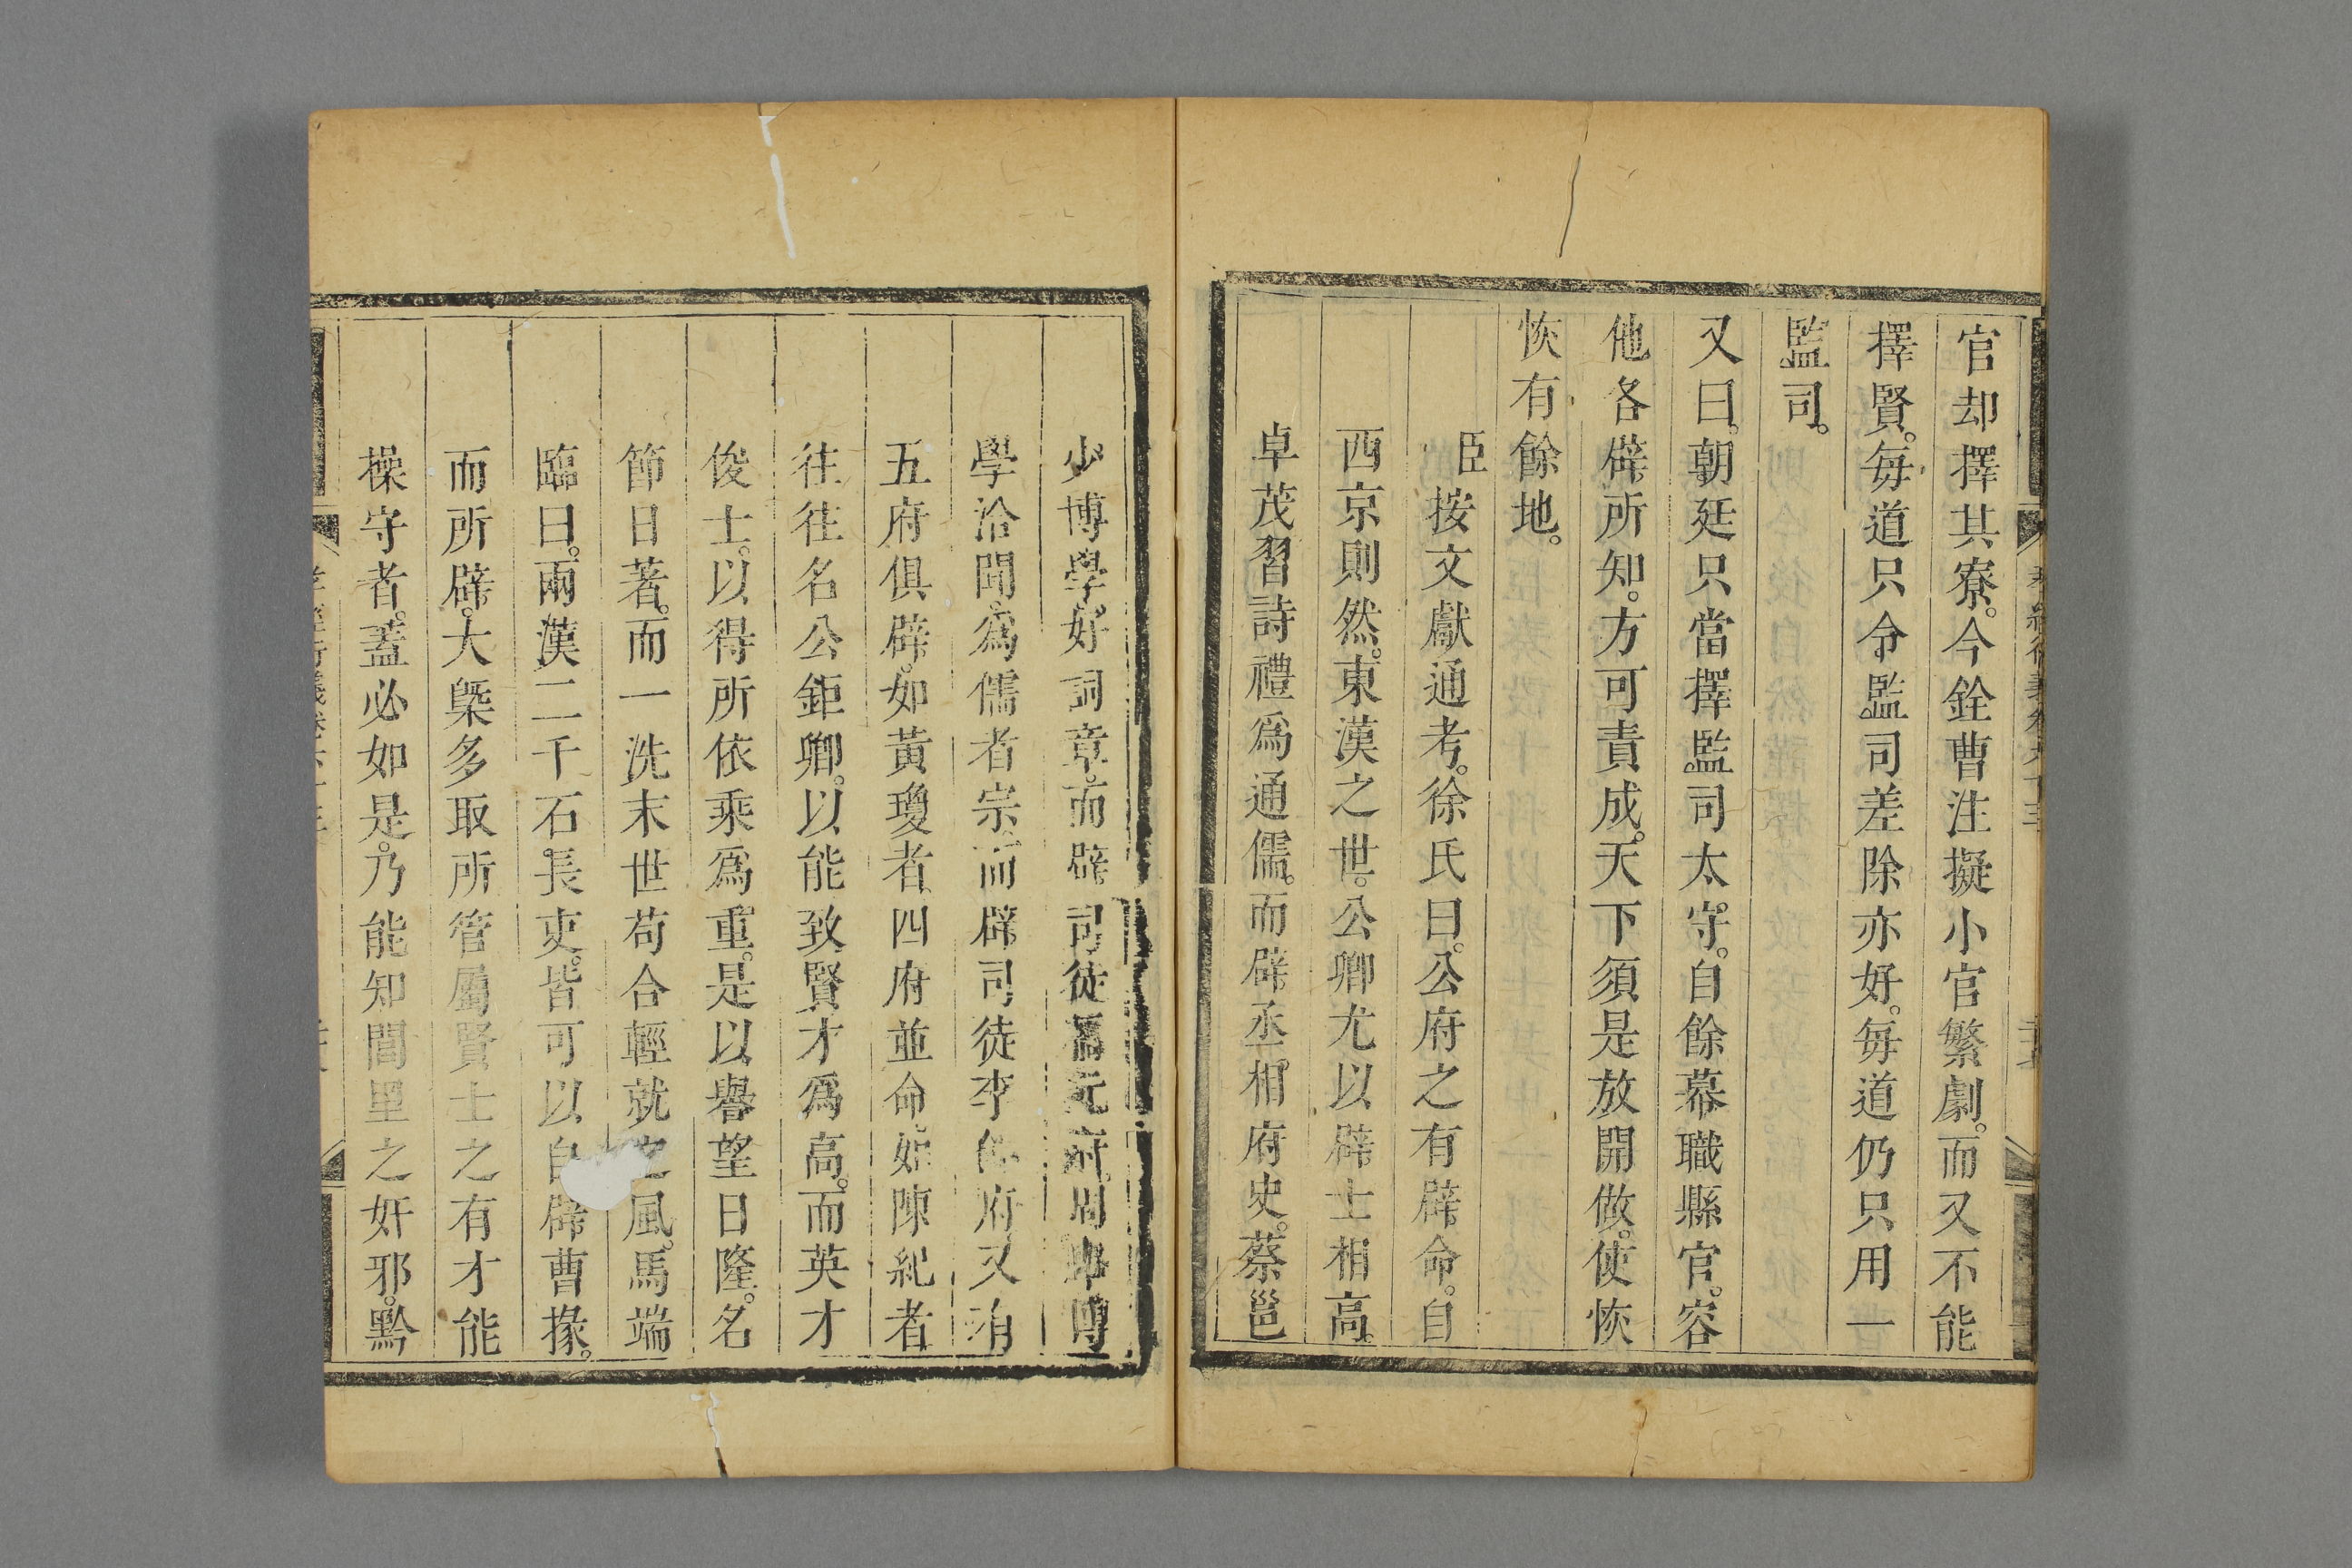 官却擇其寮。今銓曹注擬小官繁劇。而又不能
擇賢。每道只令監司差除亦好。每道仍只用一
監司。
又曰。朝廷只當擇監司太守。自餘幕職縣官。容
他各辟所知。方可責成。天下須是放開做。使恢
恢有餘地。
臣按文獻通考。徐氏曰。公府之有辟命。自
西京則然。東漢之世。公卿尤以辟士相高。
卓茂習詩禮爲通儒。而辟丞相府史。蔡邕
少博學。好詞章。而辟司徒橋元府。周舉博
學洽聞。爲儒者宗。而辟司徒李郃府。又有
五府俱辟。如黃瓊者。四府並命。如陳紀者
往往名公鉅卿。以能致賢才爲高。而英才
俊士。以得所依乘爲重。是以譽望日隆。名
節日著。而一洗末世苟合輕就之風。馬端
臨曰。兩漢二千石長吏。皆可以自辟曹掾。
而所辟。大槩多取所管屬賢士之有才能
操守者。蓋必如是。乃能知閭里之奸邪。黔